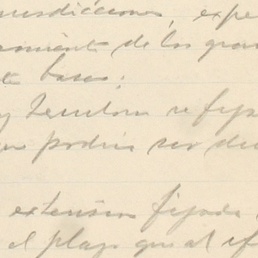 jurisdicciones, expe
miento de los gran
te bases:
y Territorio se fija
podrá ser de
extensión fijada
el plazo que al ef